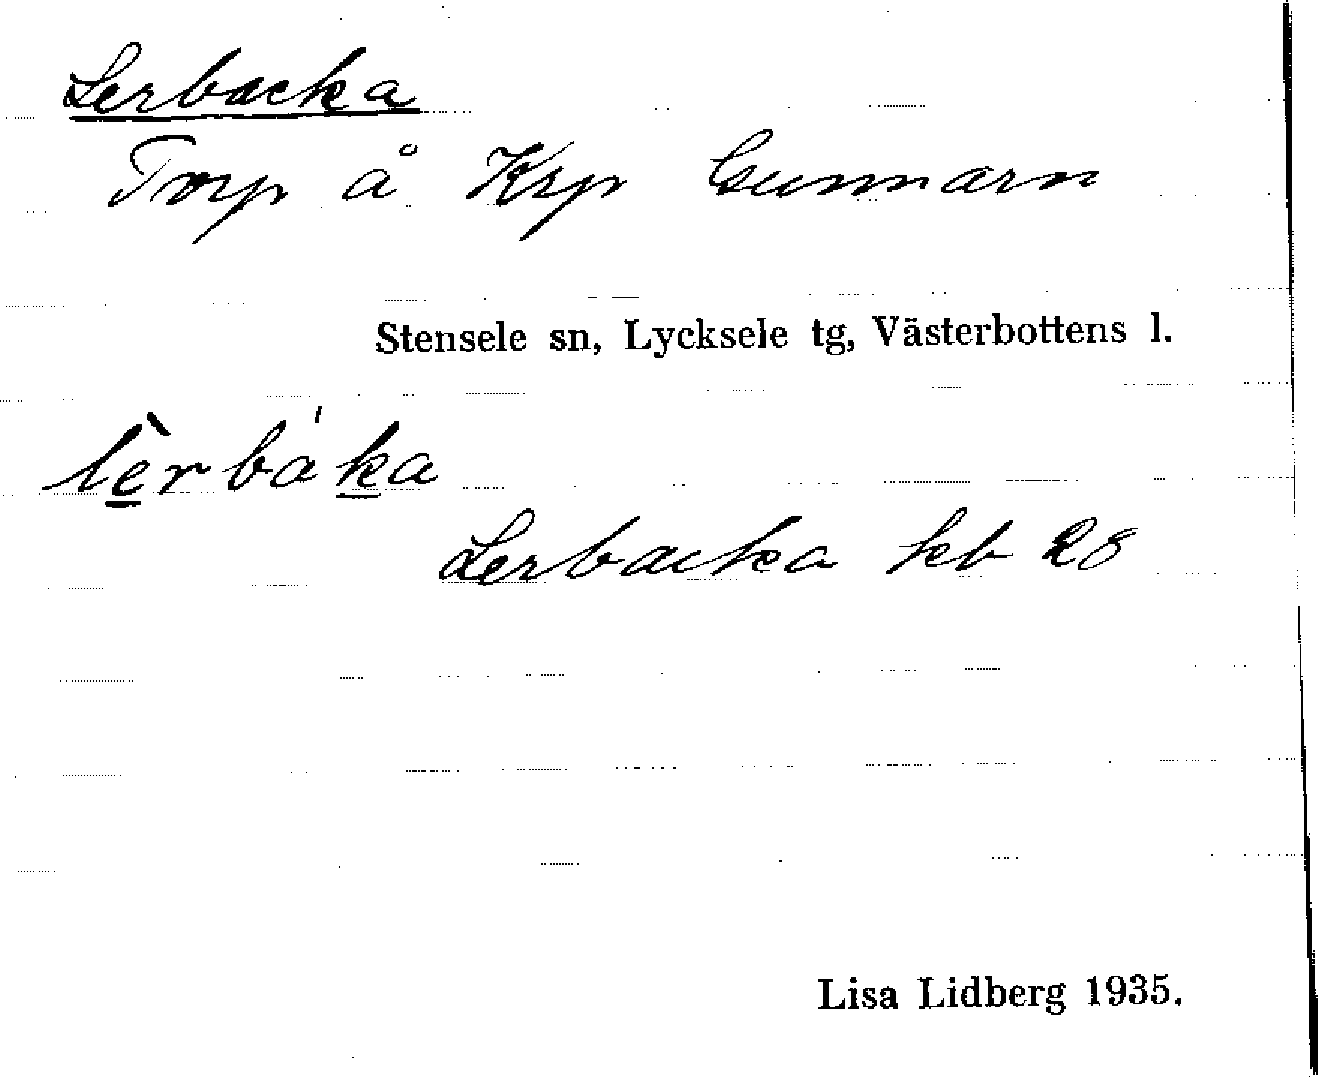 Lerbacka
Torp å Krp Gunnarn
Stensele sn, Lycksele tg, Västerbottens l.
lèrba'ka
Lerbacka kb 28
Lisa Lidberg 1935.